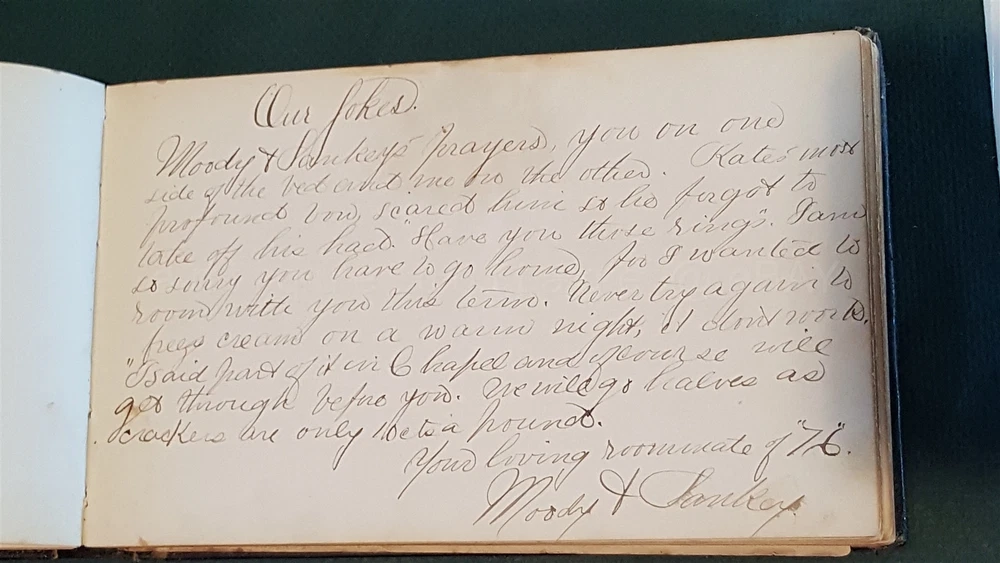 Our Jokes.
Moody & Sankey's Prayers, you on one
side of the bed and me on the other. Kate's most
profound bow, scared him so he forgot to
take off his hat. "Have you those rings". I am
so sorry you have to go home, for I wanted to
room with you this term. Never try again to
freeze cream on a warm night, it dont work.
"I said part of it in Chapel and of course will
get through before you. We will go halves as
crackers are only 10 cts a pound.
Your loving roommate of "76".
Moody & Sankey.